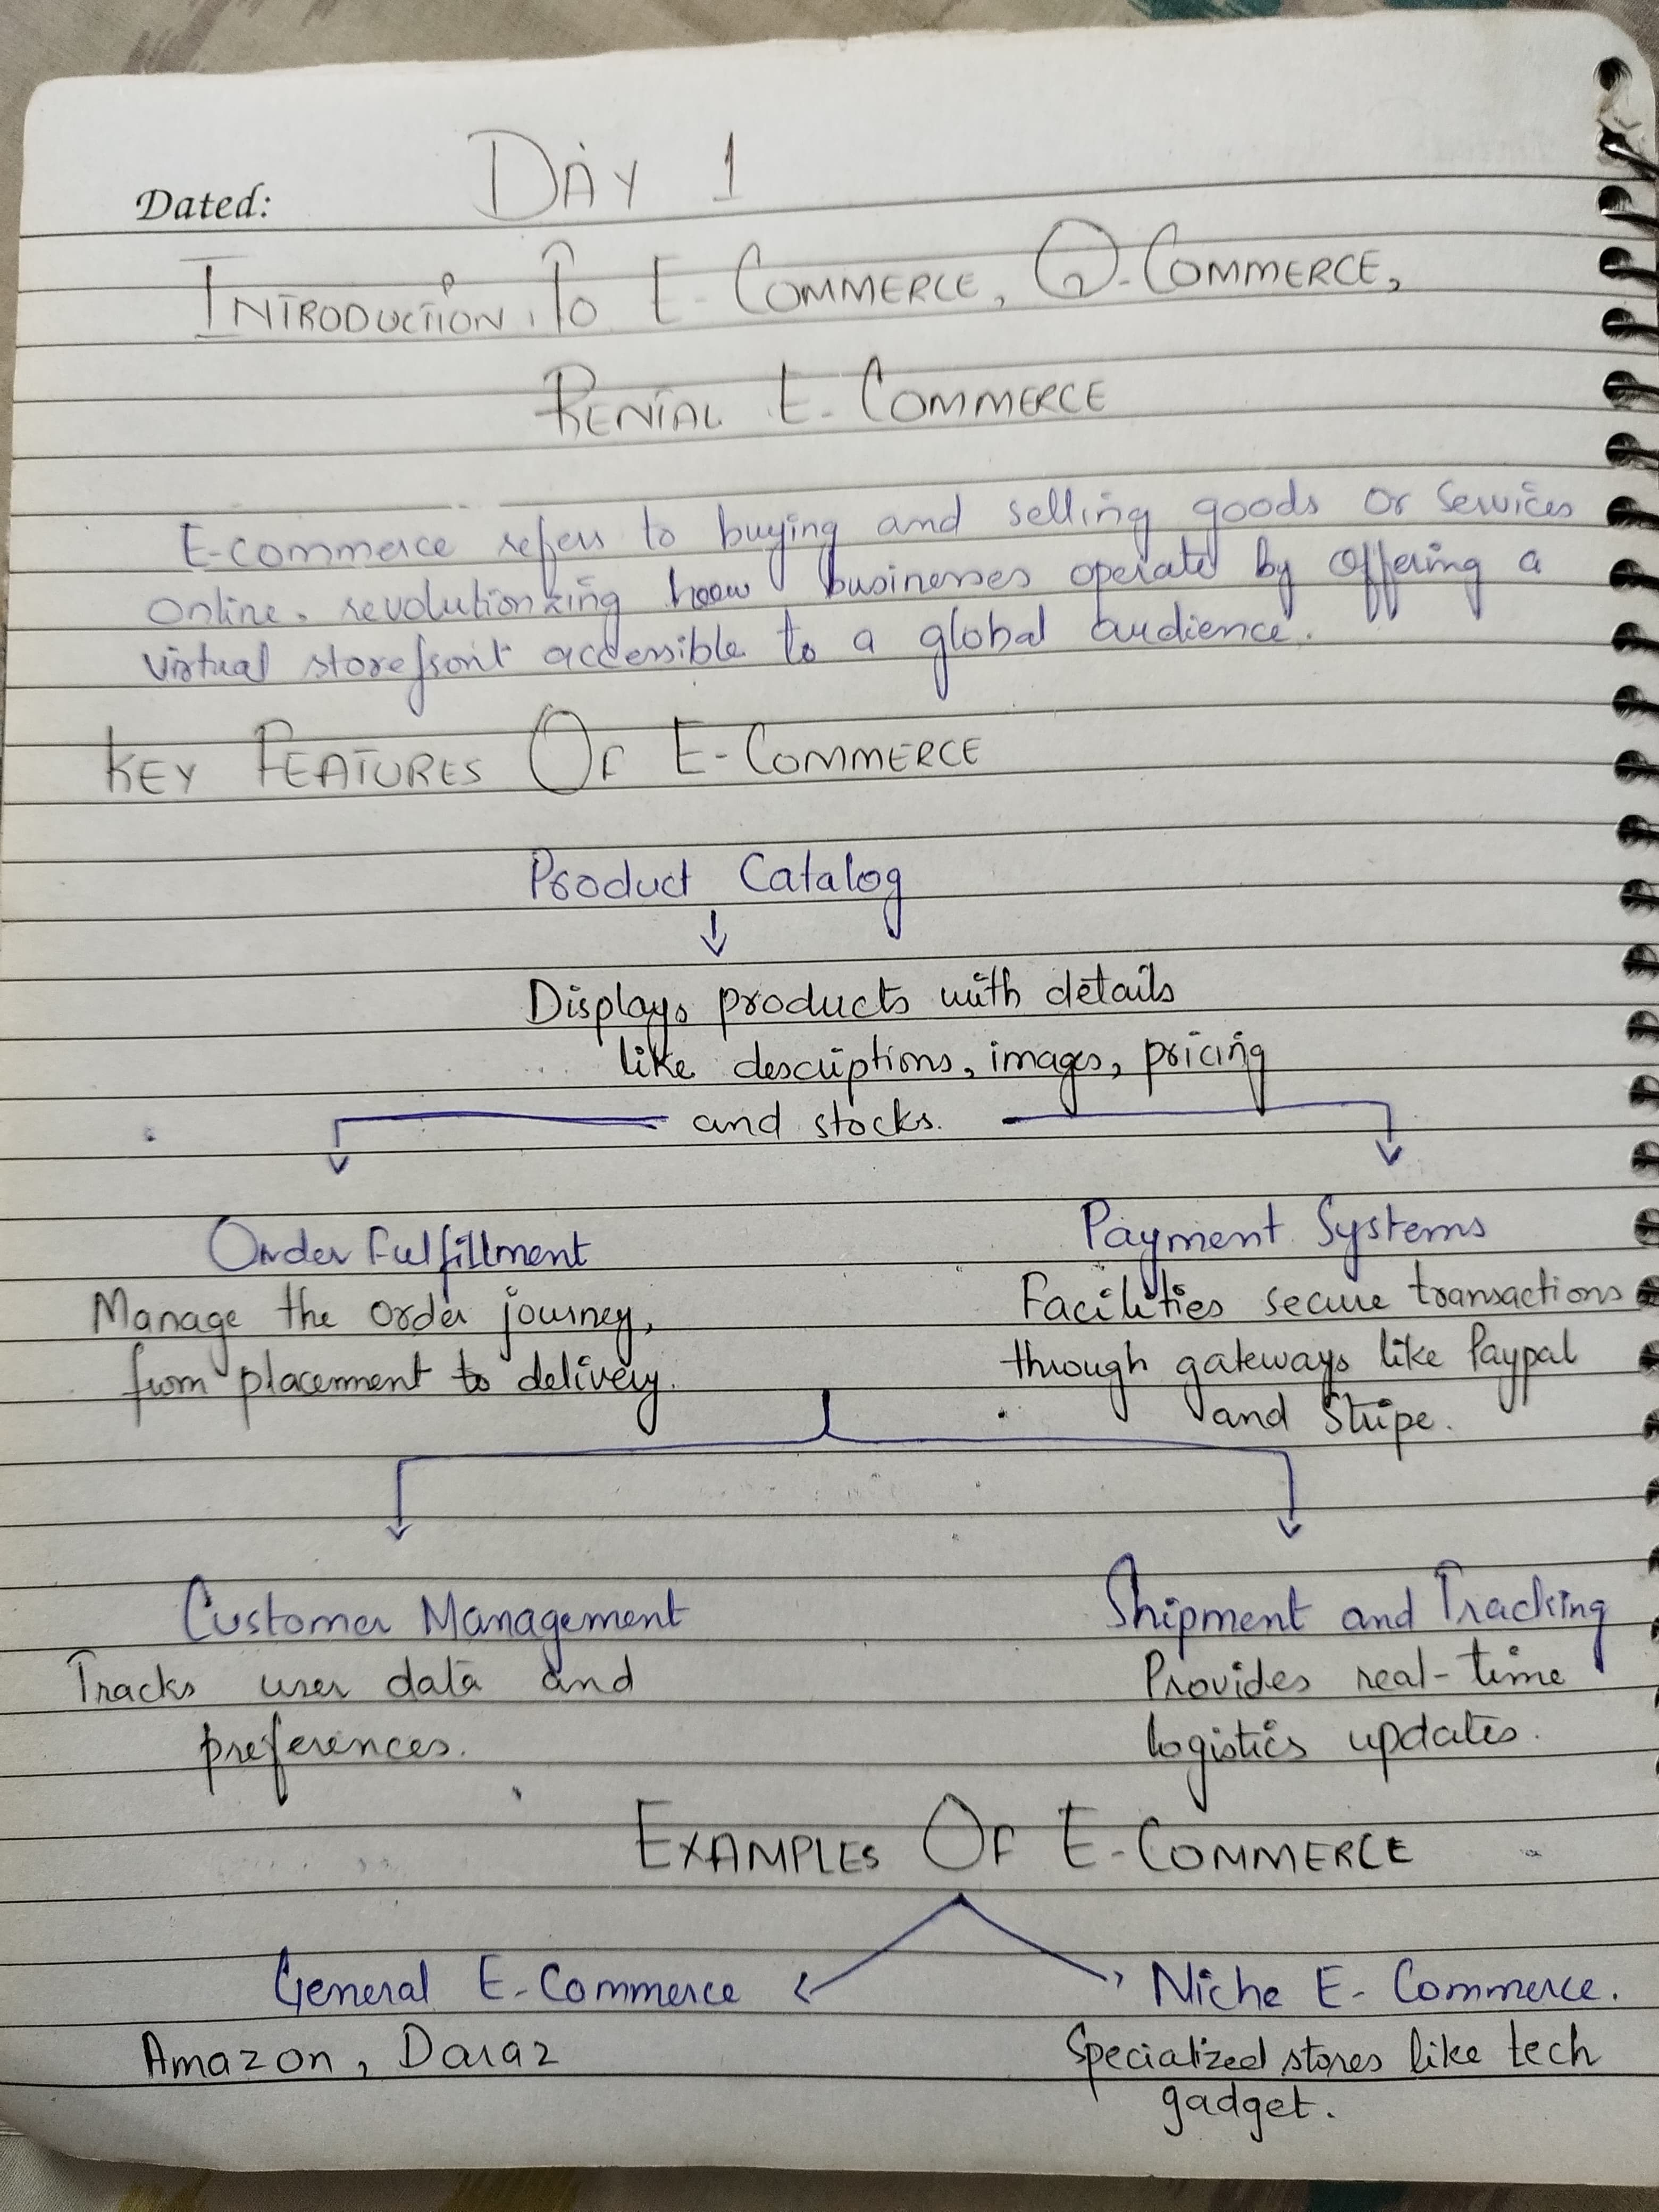 DAY 1
Dated:
INTRODUCTION TO E-COMMERCE, Q-COMMERCE,
RENTAL E-COMMERCE
E-commerce refers to buying and selling goods or services
online, revolutionizing how businesses operate by offering a
virtual storefront accessible to a global audience.
KEY FEATURES OF E-COMMERCE
Product Catalog
Displays products with details
like descriptions, images, pricing
and stocks.
Order Fulfillment
Manage the order journey,
from placement to delivery.
Payment Systems
Facilities secure transactions
through gateways like Paypal
and Stripe.
Customer Management
Tracks user data and
preferences.
Shipment and Tracking
Provides real-time
logistics updates.
EXAMPLES OF E-COMMERCE
General E-Commerce
Amazon, Daraz
Niche E-Commerce.
Specialized stores like tech
gadget.